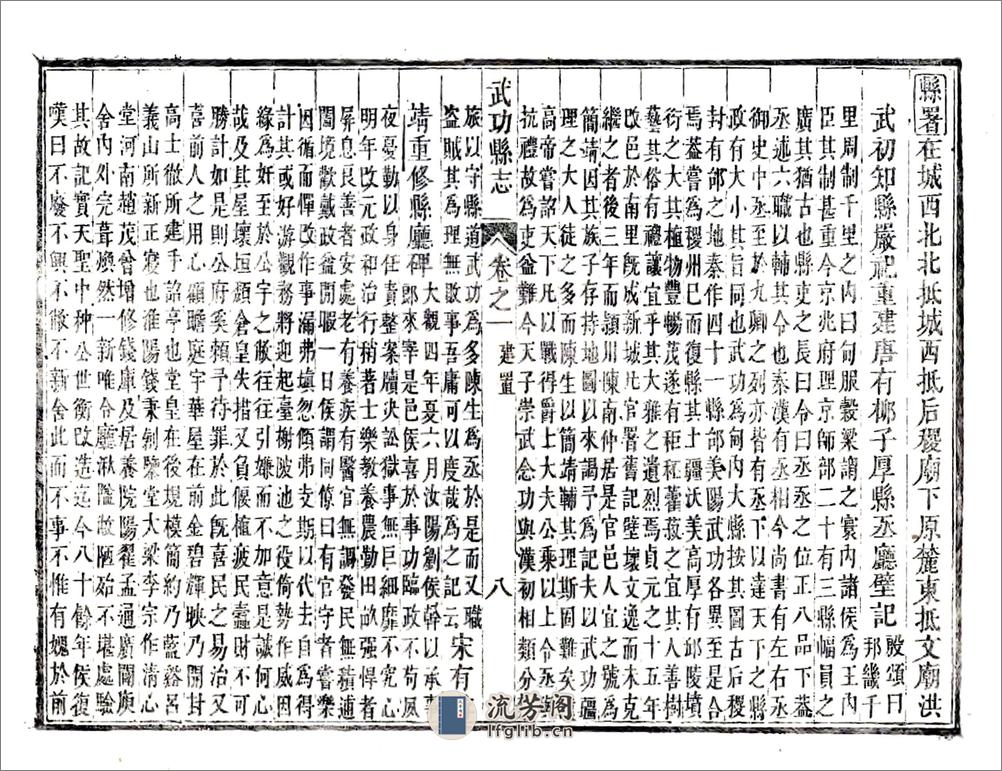 縣署在城西北北抵城西抵后稷廟下原麓東抵文廟洪
武初知縣嚴祀重建唐有柳子厚縣丞廳壁記殷頌曰邦畿千
里周制千里之内曰甸服穀梁謂之寰内諸侯爲王内
臣其制甚重今京兆府理京師部二十有三縣幅員
廣其猶古也縣吏之長曰令曰丞丞之位正八品下蓋
丞述六職以輔其令也秦漢有丞相今尚書有左右丞
御史中丞至於九卿之列亦皆有丞下以達天下之縣
政有大小其旨同也武功爲甸内大縣按其圖古后稷
封有邰之地秦作四十一縣邰美陽武功各異至是合
焉蓋嘗爲稷州已而復縣其土疆沃美高厚有邱陵墳
衍之大其植物豐暢茂遂有秬秠藿菽之宜其人善樹
藝其俗有禮讓宜乎其大雅之遺烈焉貞元之十五年
改邑於南里既成新城凡官署舊記壁壞文逸而未克
繼之者後三年而潁川陳南仲居是官邑人宜之號爲
簡靖因其族子存持地圖以來謁予爲記夫以武功疆
理之大人徒之多而陳生以簡靖輔其理斯固難矣
高帝嘗詔天下凡以戰得爵士大夫公乘以上令丞與
抗禮故爲吏益難今天子崇武念功與漢初相類分禁
武功縣志 卷之一 建置 八
旅以守縣道武功爲多陳生爲丞於是而又職
盜賊其爲理無敗事吾庸可以度哉爲之記云宋有
靖重修縣廳碑大觀四年夏六月汝陽劉侯幹以承事郎來爲是邑侯喜於事功臨政不苟夙
夜憂勤以身任責整案牘決訟獄事無巨細靡不究心
明年改元政和治行稍著士樂教養農勤田畝强悍者
屏息良善者安處老有養疾有醫官無調發民無積逋
闔境歡戴政益閒暇一日侯謂同僚曰有官守者嘗樂
因循而憚改作居漏弗塡忽傾弗支期以代去自爲得
計其或好游觀務將迎起臺榭陂池之役倚勢作威因
緣爲奸至於公宇之敝往往引嫌而不加意是誠何心
哉及其屋壞垣頽倉皇失措又負偃植疲民蠹財不可
勝計如是則吾待罪於此民之易治又
喜前人之用心顧瞻庭宇華屋在前金碧輝映乃開封
高士徹所建手詔亭也堂皇在後規模簡約乃藍谿呂
義山所新正寢也淮陽錢秉劍鑒堂大梁李宗作清心
堂河南趙茂曾增修錢庫及居養院陽翟孟通廣闢庾
舍内外完葺煥然一新唯令㕔故陋始不堪處驗
其故記實天聖中种公世衡改造迄今八十餘年侯復
嘆曰不廢不興不敝不新舍此而不事不惟有媿於前
流芳閣
lfglib.cn